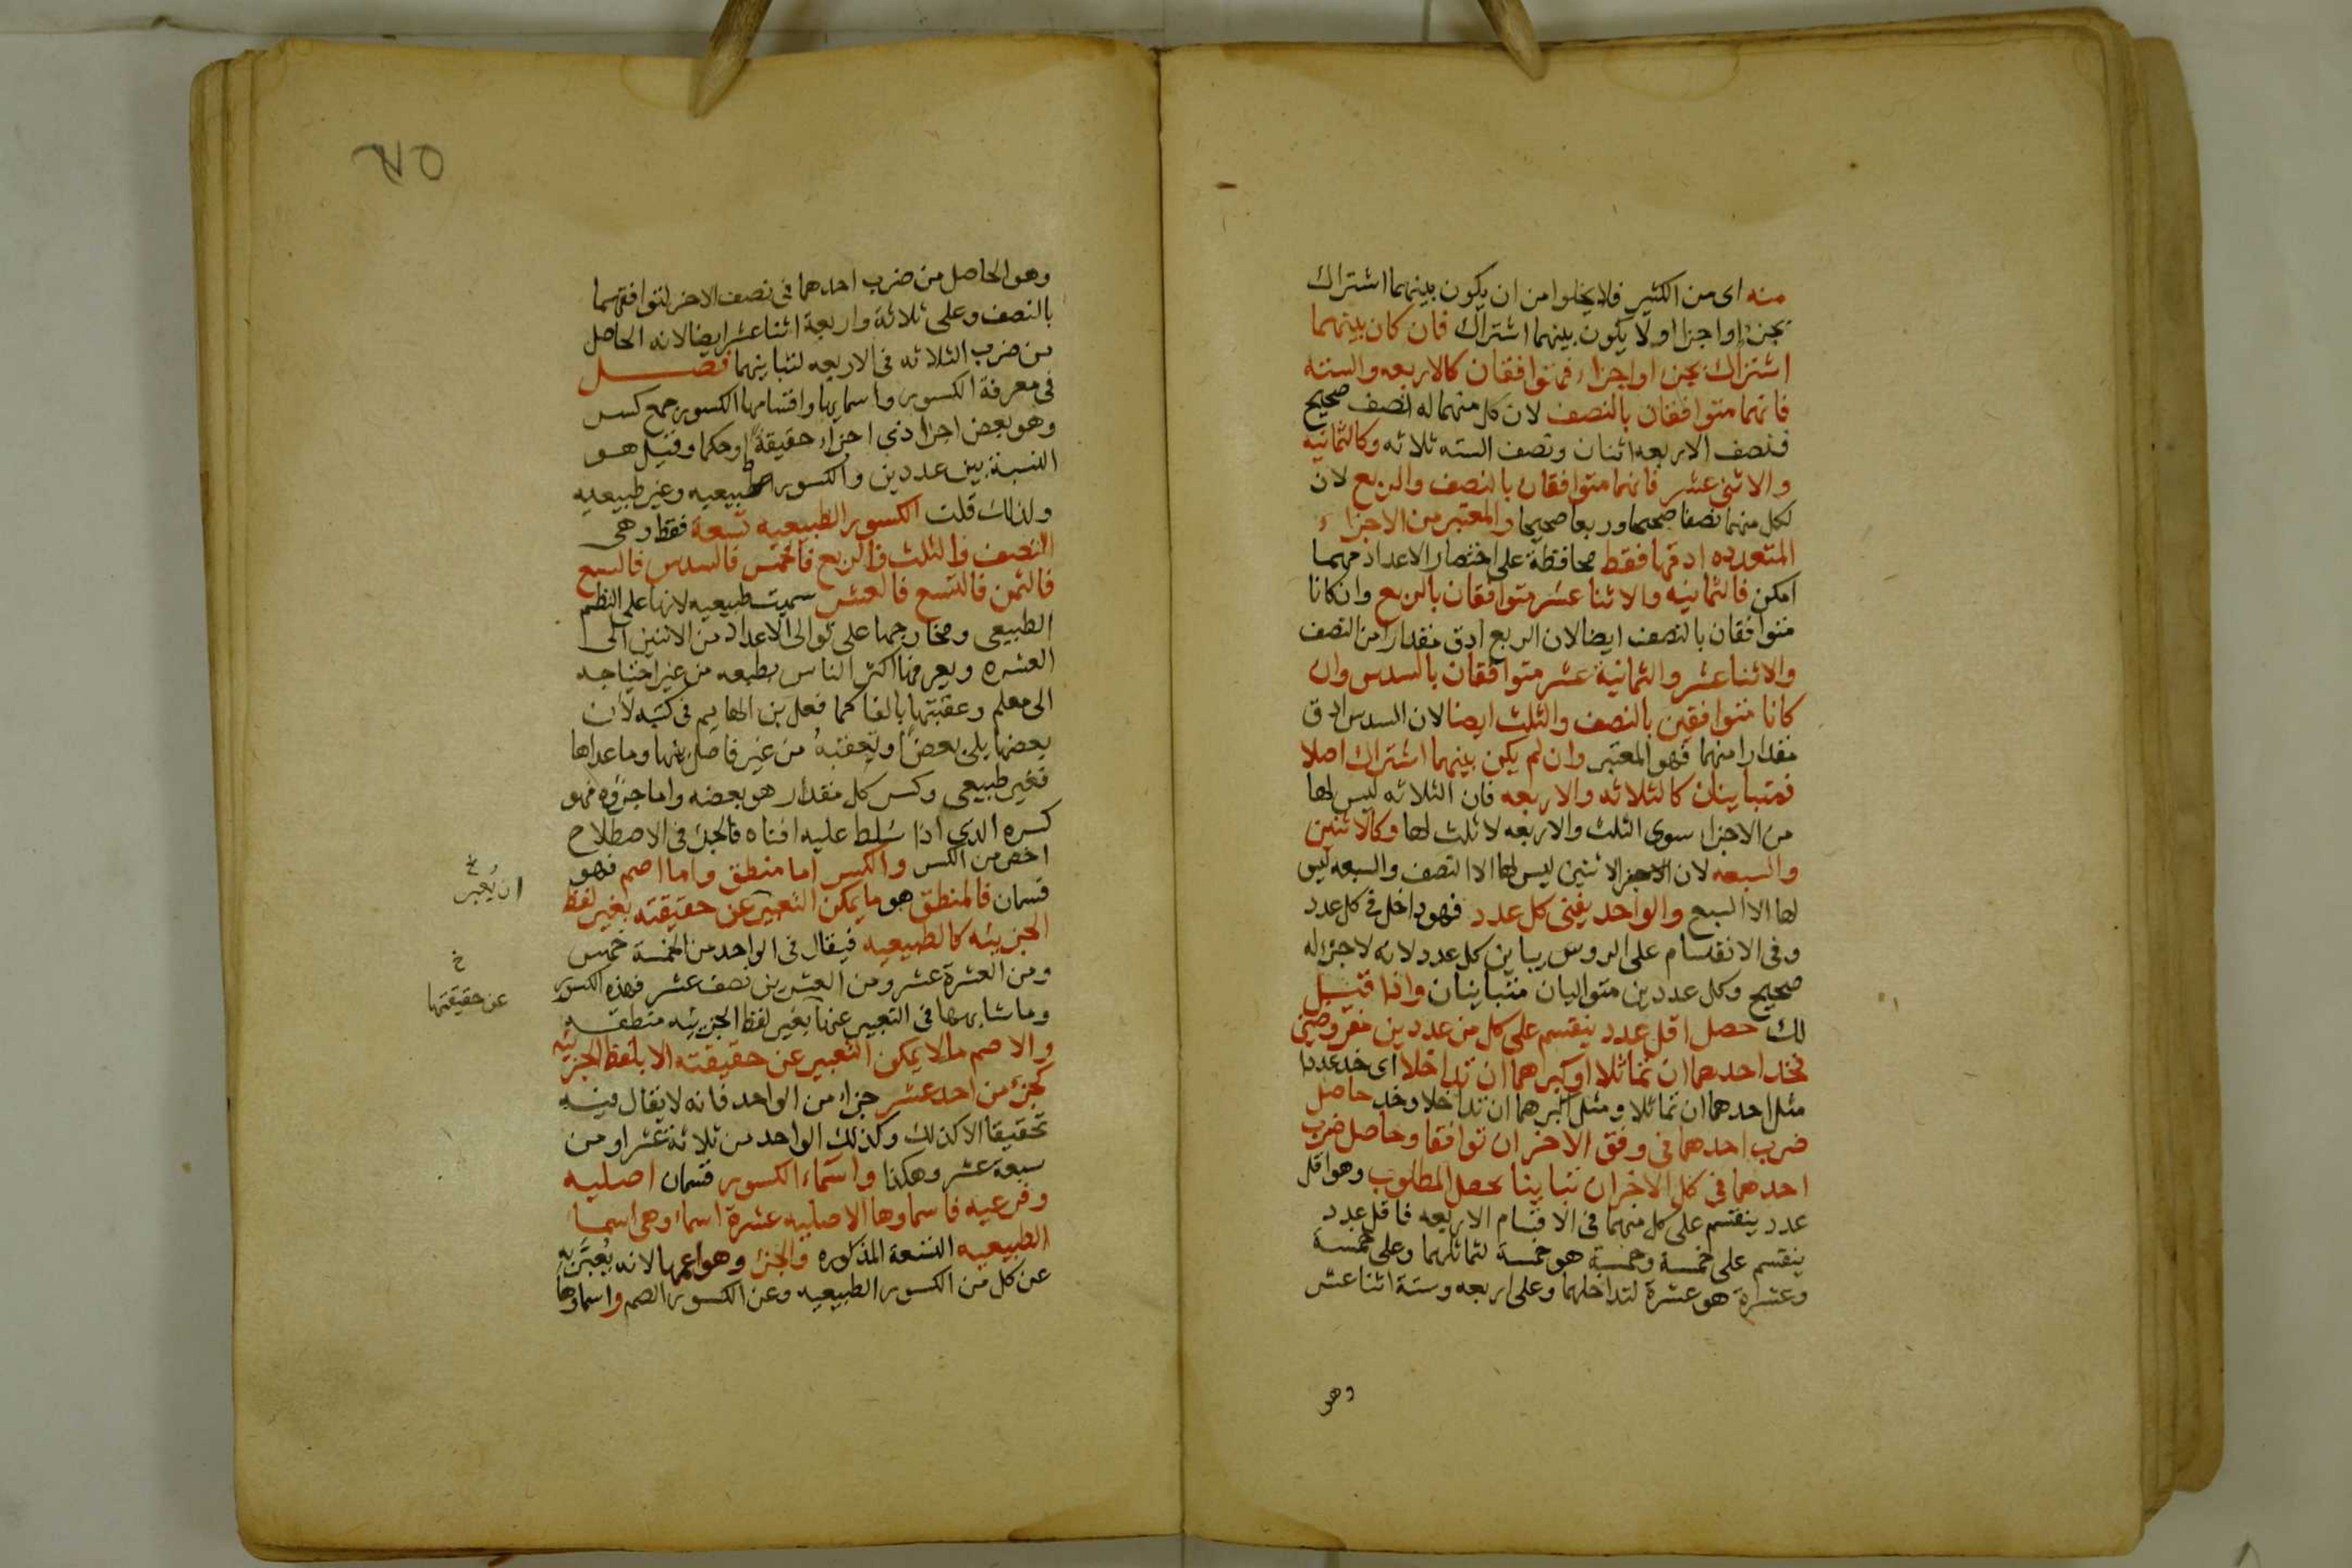 منه اى من الكثير فلا يخلوا من ان يكون بينهما اشتراك
بجزء او اجزا او لا يكون بينهما اشتراك فان كان بينهما
اشتراك بجزء او اجزاء فمتوافقان كالاربعه والسته
فانهما متوافقان بالنصف لان كل منهما له نصف صحيح
فنصف الاربعه اثنان ونصف السته ثلاثه وكالثمانيه
والاثنى عشر فانهما متوافقان بالنصف والربع لان
لكل منهما نصفا صحيحا وربعا صحيحا والمعتبر من الاجزاء
المتعدده ادقها فقط محافظة على اختصار الاعداد مهما
امكن فالثمانيه والاثنا عشر متوافقان بالربع وان كانا
متوافقان بالنصف ايضا لان الربع ادق مقدارا من النصف
والاثنا عشر والثمانية عشر متوافقان بالسدس وان
كانا متوافقين بالنصف والثلث ايضا لان السدس ادق
مقدارا منهما فهو المعتبر وان لم يكن بينهما اشتراك اصلا
فمتباينان كالثلاثه والاربعه فان الثلاثه ليس لها
من الاجزا سوى الثلث والاربعه لا ثلث لها وكالاثنين
والسبعه لان الاثنين ليس لها الا النصف والسبعه ليس
لها الا السبع والواحد يفنى كل عدد فهو داخل فى كل عدد
وفى الانقسام على الروس يباين كل عدد لانه لا جزا له
صحيح وكل عددين متواليان متباينان واذا قيل
لك حصل اقل عدد ينقسم على كل من عددين مفروضين
فخذ احدهما ان تماثلا او اكبراهما ان تداخلا اى خذ عددا
مثل احدهما ان تماثلا ومثل اكبرهما ان تداخلا وخذ حاصل
ضرب احدهما فى وفق الاخر ان توافقا وحاصل ضرب
احدهما فى كل الاخر ان تباينا يحصل المطلوب وهو اقل
عدد ينقسم على كل منهما فى الاقسام الاربعه فاقل عدد
ينقسم على خمسة وخمسة هو خمسة لتماثلهما وعلى خمسة
وعشرة هو عشرة لتداخلهما وعلى اربعه وستة اثنا عشر
وهو
وهو الحاصل من ضرب احدهما فى نصف الاخر لتوافقهما
بالنصف وعلى ثلاثة واربعة اثنا عشر ايضا لانه الحاصل
من ضرب الثلاثه فى الاربعه لتباينهما فصل
فى معرفة الكسور واسمايها واقسامها الكسور جمع كسر
وهو بعض اجزا ذى اجزاء حقيقة او حكما وقيل هو
النسبة بين عددين والكسور طبيعيه وغير طبيعيه
ولذلك قلت الكسور الطبيعيه تسعة فقط وهى
النصف والثلث والربع فالخمس فالسدس فالسبع
فالثمن فالتسع فالعشر سميت طبيعيه لانها على النظم
الطبيعى ومخارجها على توالى الاعداد من الاثنين الى
العشره ويعرفها اكثر الناس بطبعه من غير احتياجه
الى معلم وعقبتها بالفا كما فعل بن الهايم فى كتبه لان
بعضها يلى بعضا ويعقبه من غير فاصل بينها وما عداها
فغير طبيعى وكسر كل مقدار هو بعضه واما جزؤه فهو
كسره الذى اذا سلط عليه افناه فالجزء فى الاصطلاح
اخص من الكسر والكسر اما منطق واما اصم فهو
قسمان فالمنطق هو ما يمكن التعبير عن حقيقته بغير لفظ
الجزييه كالطبيعيه فيقال فى الواحد من الخمسة خمس
ومن العشرة عشر ومن العشرين نصف عشر فهذه الكسور
وما شابهها فى التعبير عنها بغير لفظ الجزييه منطقه
والاصم ما لا يمكن التعبير عن حقيقته الا بلفظ الجزئيه
كجزء من احد عشر جزاء من الواحد فانه لا يقال فيه
تحقيقا الا كذلك وكذلك الواحد من ثلاثة عشر او من
سبعة عشر وهكذا واسماء الكسور قسمان اصليه
وفرعيه فاسماوها الاصليه عشرة اسماء وهى اسما
الطبيعيه التسعة المذكوره والجزء وهو اعمها لانه يعبر به
عن كل من الكسور الطبيعيه وعن الكسور الصم واسماؤها
خ
ان يعبر
خ
عن حقيقتها